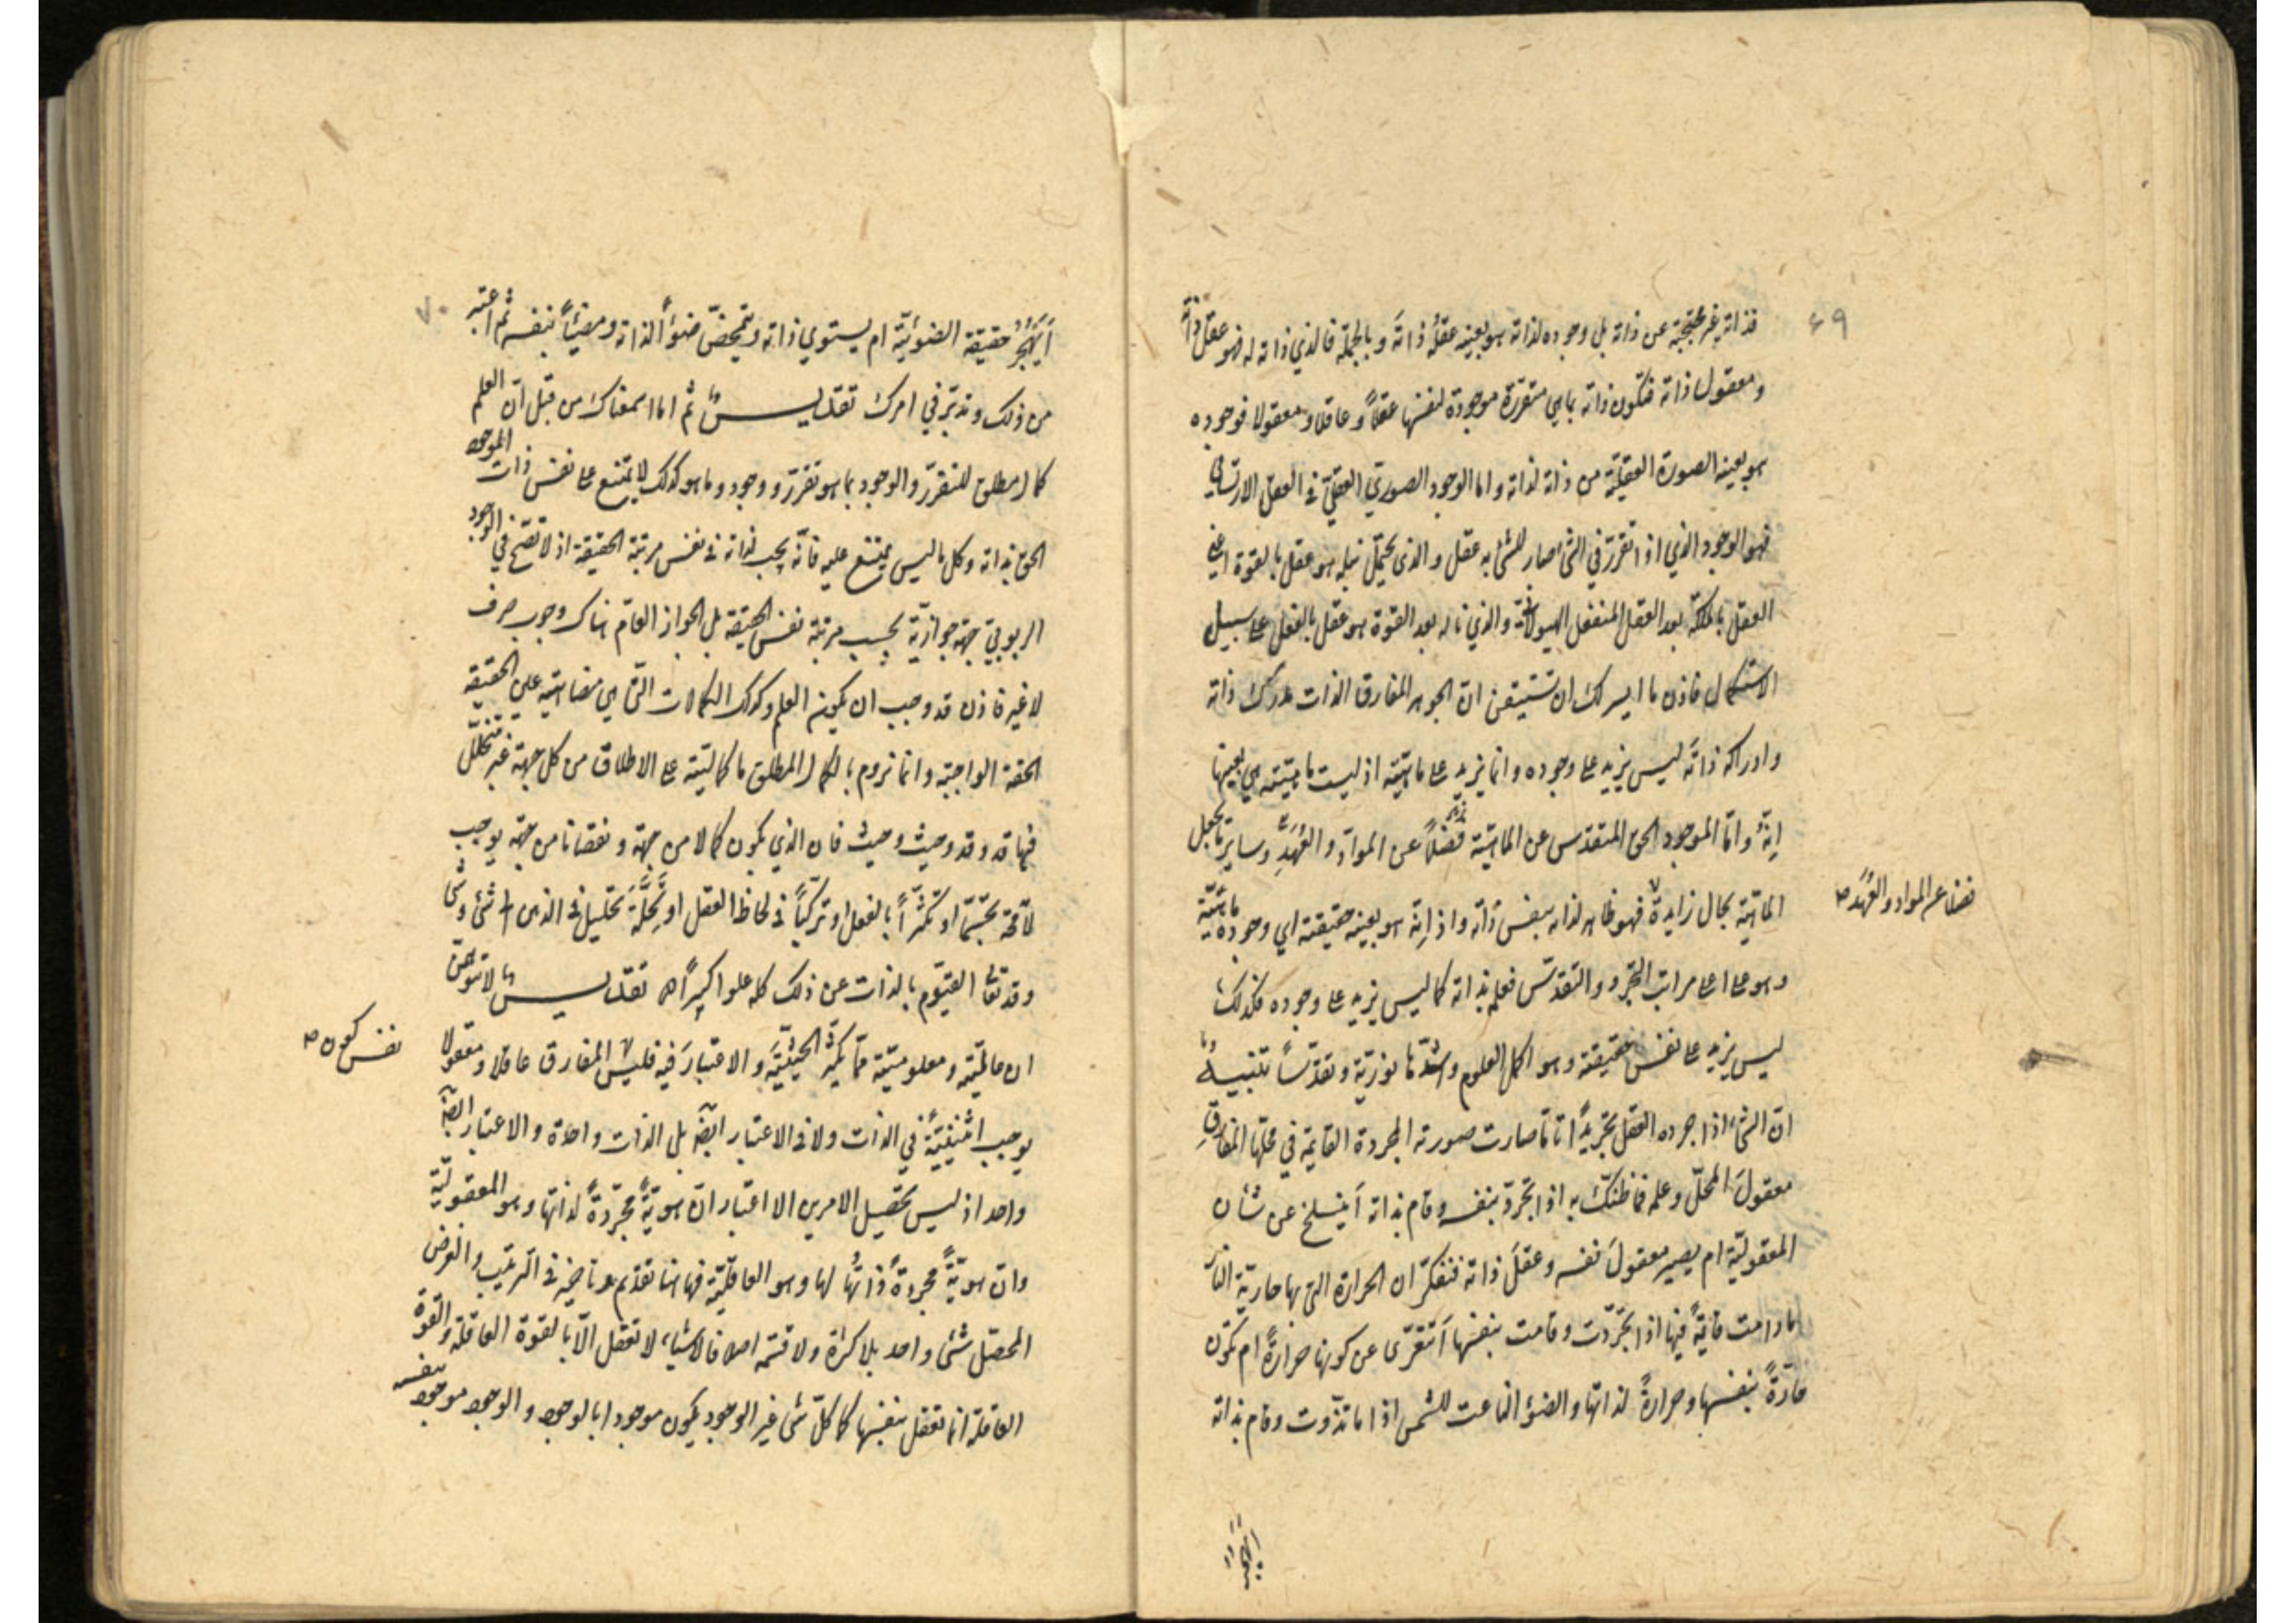 ٤٩
فذاته غير محتجبة عن ذاته بل وجوده لذاته هو بعينه عقلُه ذاتَه وبالجملة فالذي ذاته له فهو عقلُ ذاته
ومعقول ذاته فتكون ذاته بما هي متقررة موجودة لنفسها عقلاً وعاقلا ومعقولا فوجوده
هو بعينه الصورة العقليّة من ذاته لذاته واما الوجود الصوريّ العقليّ في العقل الارتسامي
فهو الوجود الذي اذا تقرّر في الشئ صار للشئ به عقل والذي يحتمل نيله هو عقل بالقوة اعني
العقل بالملكة بعد العقل المنفعل الهيولانية والذي ناله بعد القوة هو عقل بالفعل على سبيل
الاستكمال فاذن ما ايسر لك ان تستيقن انّ الجوهر المفارق الذات مدرك ذاته
وادراكه ذاتَه ليس يزيد على وجوده وانما يزيد على ماهيّته اذ ليست ماهيّته هي بعينها
إنيّته وامّا الموجود الحق المتقدس عن الماهيّة فضلاً عن الموادّ والعُهَدِ وساير ما يجعل
الماهيّة بحال زايدة فهو ظاهر لذاته بنفس ذاته واذ إنيّته هو بعينه حقيقته اي وجوده ماهيّته
فضلا عن المواد والعُهَد صح
وهو على اعلى مراتب التجرد والتقدّس فعلمه بذاته كما ليس يزيد على وجوده فكذلك
ليس يزيد على نفس حقيقته وهو اكمل العلوم واشدّها نوريّة وتقدّساً تنبيهٌ
انّ الشئ اذا جرده العقل تجريداً تامّا صارت صورته المجردة القايمة في محلّها المفارق
معقولَ المحلّ وعلمه فما ظنّك به اذا تجرّد بنفسه وقام بذاته أينسلخ عن شأن
المعقوليّة ام يصير معقولَ نفسه وعقلَ ذاته فتفكّر ان الحرارة التي بها حاريّة النار
ما دامت قايمةً فيها اذا تجرّدت وقامت بنفسها أتتعرّى عن كونها حرارةً ام تكون
حارّةً بنفسها وحرارةً لذاتها والضوء الناعت للشمس اذا ما تذوّت وقام بذاته
٧٠
أيَهجُرُ حقيقة الضوئيّة ام يستوي ذاته ويتمحّض ضوءاً لذاته ومضيئاً بنفسه ثم اعتبر
من ذلك وتدبّر في امرك تقديسٌ ثم اما اسمعناك من قبل انّ العلم
كمال مطلق للمتقرّر والموجود بما هو تقرّر ووجود وما هو كذلك لا يمتنع على نفس ذات الموجود
الحق بذاته وكل ما ليس يمتنع عليه فانّه يجب لذاته في نفس مرتبة الحقيقة اذ لا تصحّ في الوجود
الربوبيّ جهة جوازيّة بحسب مرتبة نفس الحقيقة بل الجواز العام هناك وجوب صرف
لا غير فاذن قد وجب ان يكون العلم وكذلك الكمالات التي هي مضاهيته عين الحقيقة
الحقة الواجبة وانما نروم بالكمال المطلق ما كماليّته على الاطلاق من كل جهة غير متخلّل
فيها قد وقد وحيث وحيث فان الذي يكون كمالا من جهة ونقصانا من جهة يوجب
لا محة تجسّماً او تكثّراً بالفعل او تركّباً في لحاظ العقل او تَحِلَّةَ تحليل في الذهن الى شئ وشئ
وقد تعالى القيّوم بالذات عن ذلك كله علوا كبيراً تقديسٌ لا تتوهمنّ
ان عالميّته ومعلوميّته ممّا يكثّر الحيثيّةَ والاعتبارَ فيه فليس المفارق عاقلا ومعقولا
نفس كون صح
يوجب اثنينيّةً في الذات ولا في الاعتبار ايضا بل الذات واحدة والاعتبار ايضا
واحد اذ ليس تحصيل الامرين الا اعتبار انّ هويّةً مجرّدةً لذاتها وهو المعقوليّة
وانّ هويّةً مجردةً ذاتُها لها وهو العاقليّة فها هنا تقديم وتاخير في الترتيب والغرض
المحصّل شئ واحد بلا كثرة ولا قسمة اصلا فالاشياء لا تعقل الّا بالقوة العاقلة والقوة
العاقلة انما تعقل بنفسها كما كلّ شئ غير الوجود يكون موجودا بالوجود والوجود موجود بنفسه